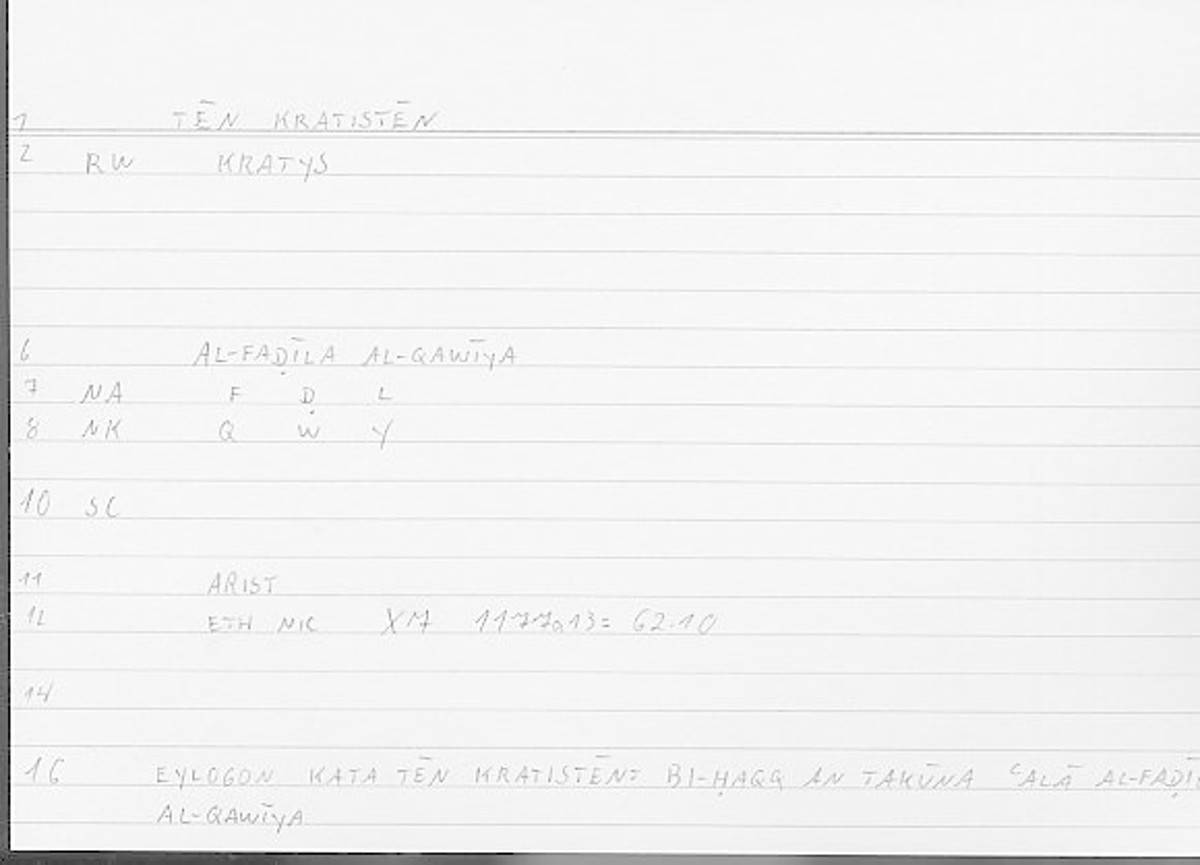 1 TĒN KRATISTĒN
2 RW KRATYS
6 AL-FAḌĪLA AL-QAWĪYA
7 NA F Ḍ L
8 NK Q W Y
10 SC
11 ARIST
12 ETH NIC X7 1177a13= 62.10
14
16 EYLOGON KATA TĒN KRATISTĒN: BI-ḤAQQ AN TAKŪNA ʿALĀ
AL-QAWĪYA